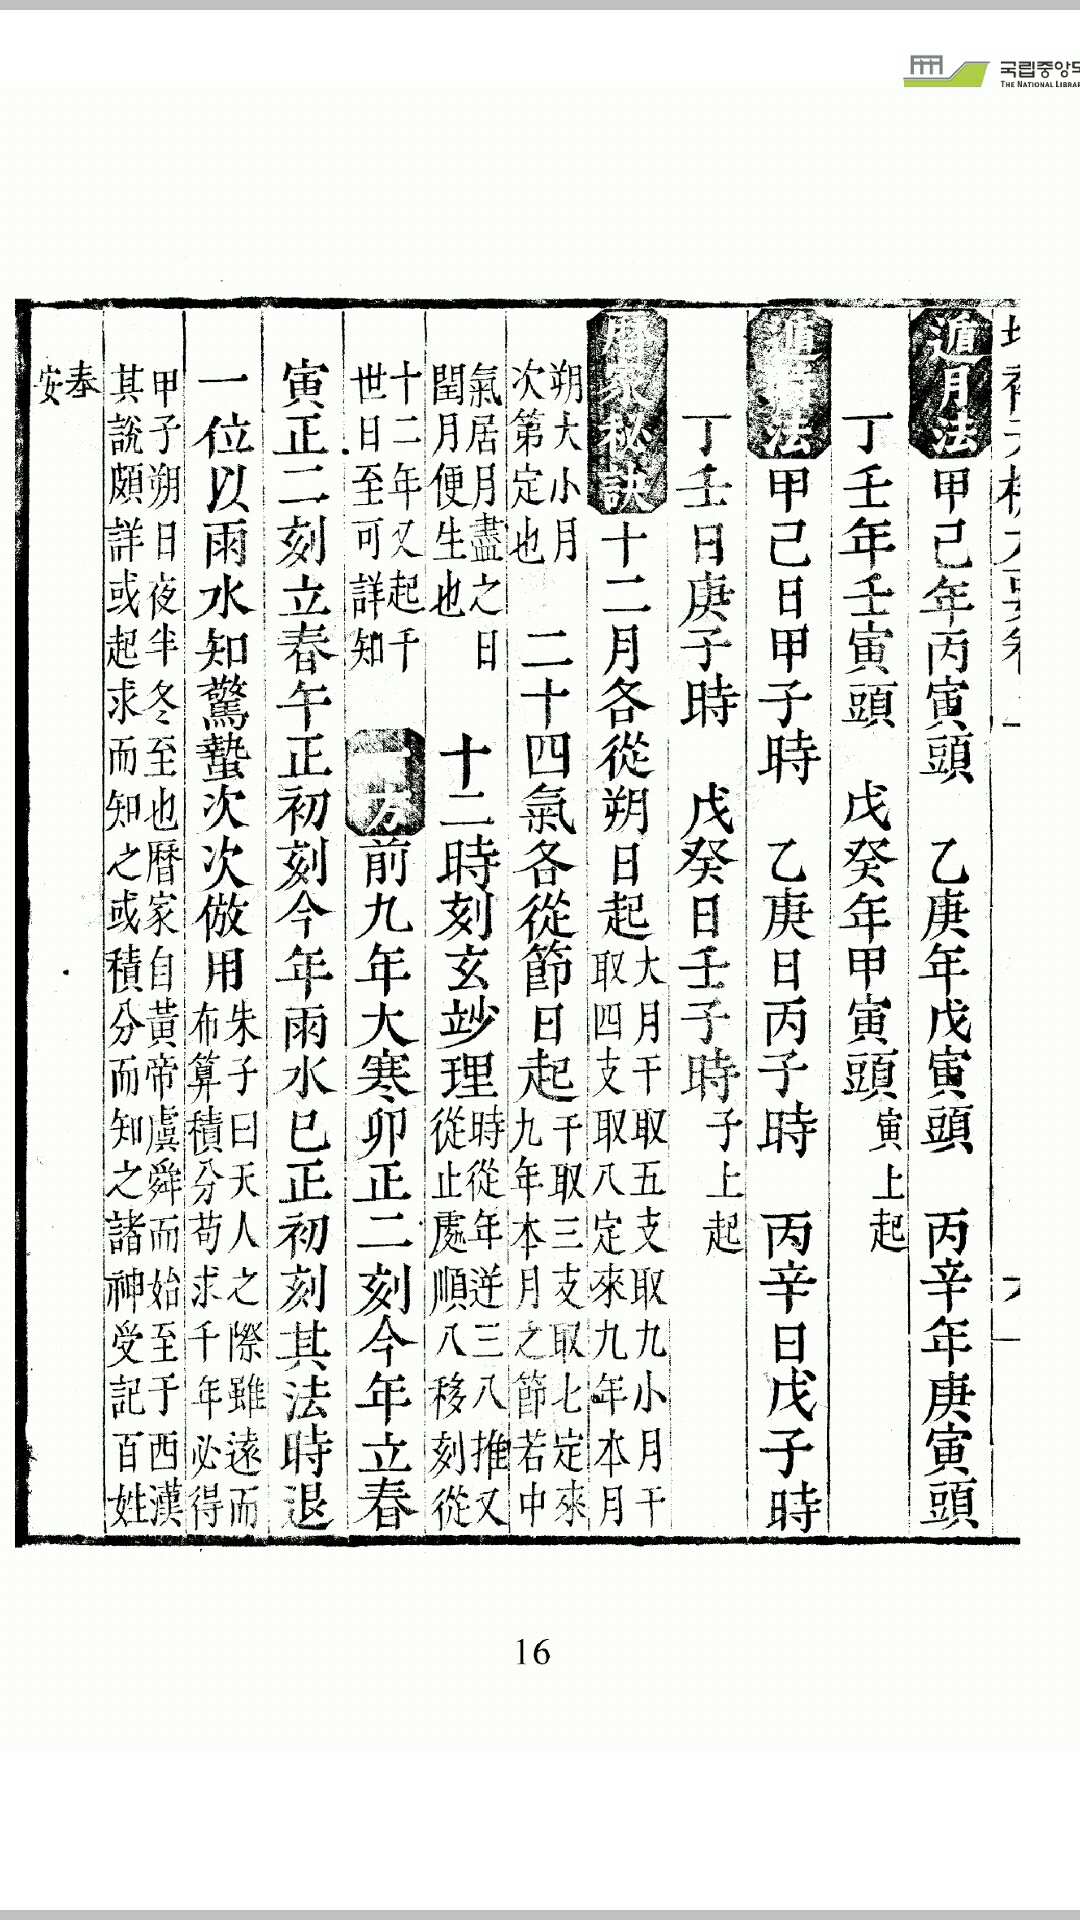 국립중앙도
THE NATIONAL LIBRAR
遁月法 甲己年丙寅頭 乙庚年戊寅頭 丙辛年庚寅頭
丁壬年壬寅頭 戊癸年甲寅頭 寅上起
遁時法 甲己日甲子時 乙庚日丙子時 丙辛日戊子時
丁壬日庚子時 戊癸日壬子時 子上起
曆家秘訣 十二月各從朔日起 大月干取五支取九小月干
取四支取八定來九年本月
朔大小月
次第定也 二十四氣各從節日起 干取三支取七定來
九年本月之節若中
氣居月盡之日
閏月便生也 十二時刻玄妙理 時從年逆三八推又
從止處順八移刻從
十二年又起千
世日至可詳知 一方 前九年大寒卯正二刻今年立春
寅正二刻立春午正初刻今年雨水巳正初刻其法時退
一位以雨水知驚蟄次次倣用 朱子曰天人之際雖遠而
布算積分苟求千年必得
甲子朔日夜半冬至也曆家自黃帝虞舜而始至于西漢
其說頗詳或起求而知之或積分而知之諸神受記百姓
奉
安
16